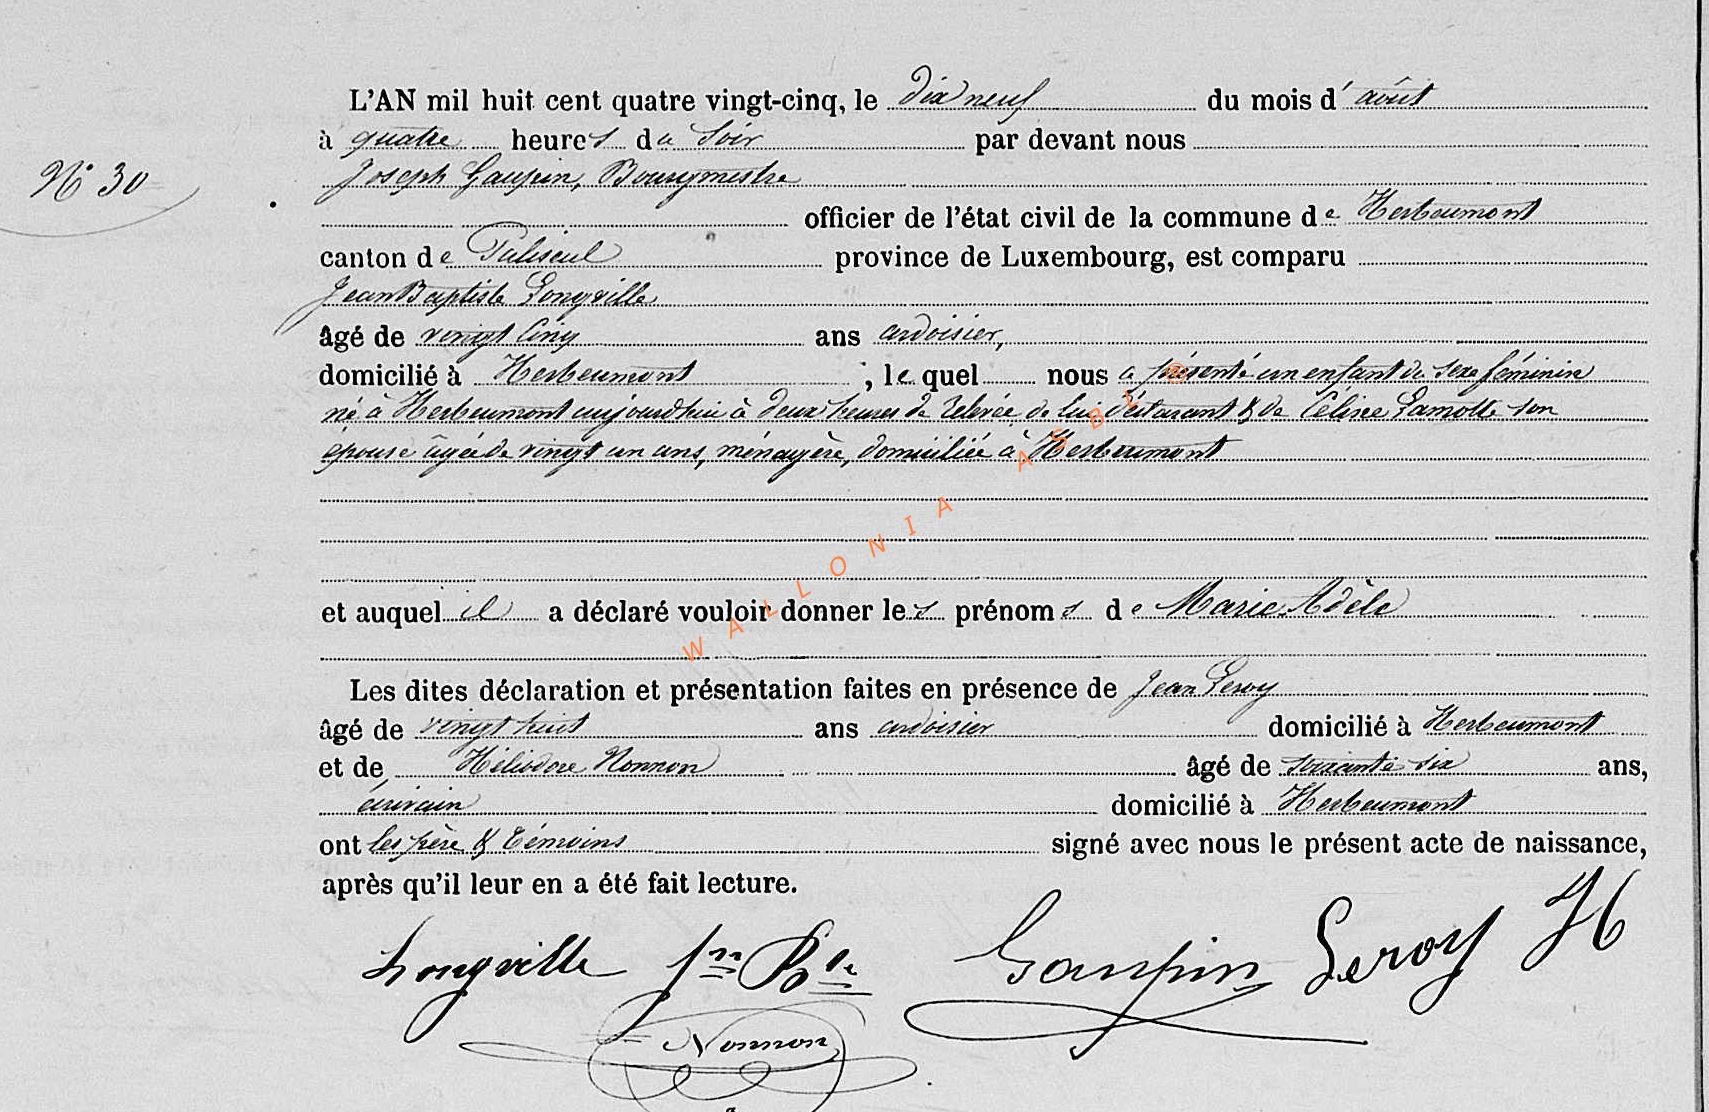 L'AN mil huit cent quatre vingt-cinq, le dix neuf du mois d'août
à quatre heures du soir par devant nous
N° 30
Joseph Gaupin, Bourgmestre
officier de l'état civil de la commune de Herbeumont
canton de Paliseul province de Luxembourg, est comparu
Jean Baptiste Longville
âgé de vingt cinq ans ardoisier,
domicilié à Herbeumont, lequel nous a présenté un enfant du sexe féminin
né à Herbeumont aujourd'hui à deux heures de relevée de lui déclarant & de Célinee Lamotte son
épouse âgée de vingt un ans, ménagère, domiciliée à Herbeumont
WALLONIA ASBL ©
et auquel il a déclaré vouloir donner les prénoms de Marie Adèle
Les dites déclaration et présentation faites en présence de Jean Leroy
âgé de vingt huit ans ardoisier domicilié à Herbeumont
et de Héliodore Nonnon âgé de soixante six ans,
écrivain domicilié à Herbeumont
ont les père & témoins signé avec nous le présent acte de naissance,
après qu'il leur en a été fait lecture.
Longville Jn Bte Gaupin Leroy
Nonnon